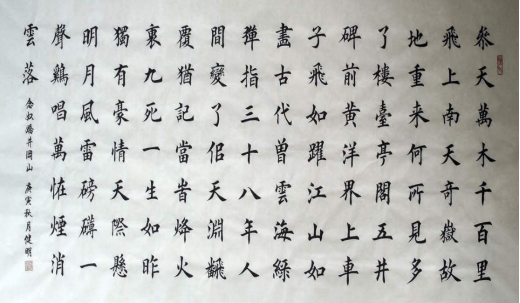 叅天萬木千百里
飛上南天奇嶽故
地重来何所見多
了樓臺亭閣五井
碑前黄洋界上車
子飛如躍江山如
畫古代曾雲海綠
彈指三十八年人
間變了佀天淵飜
覆猶記當旹烽火
裏九死一生如昨
獨有豪情天際懸
明月風雷磅礴一
聲鷄唱萬恠煙消
雲落
念奴嬌井岡山 庚寅秋月健明